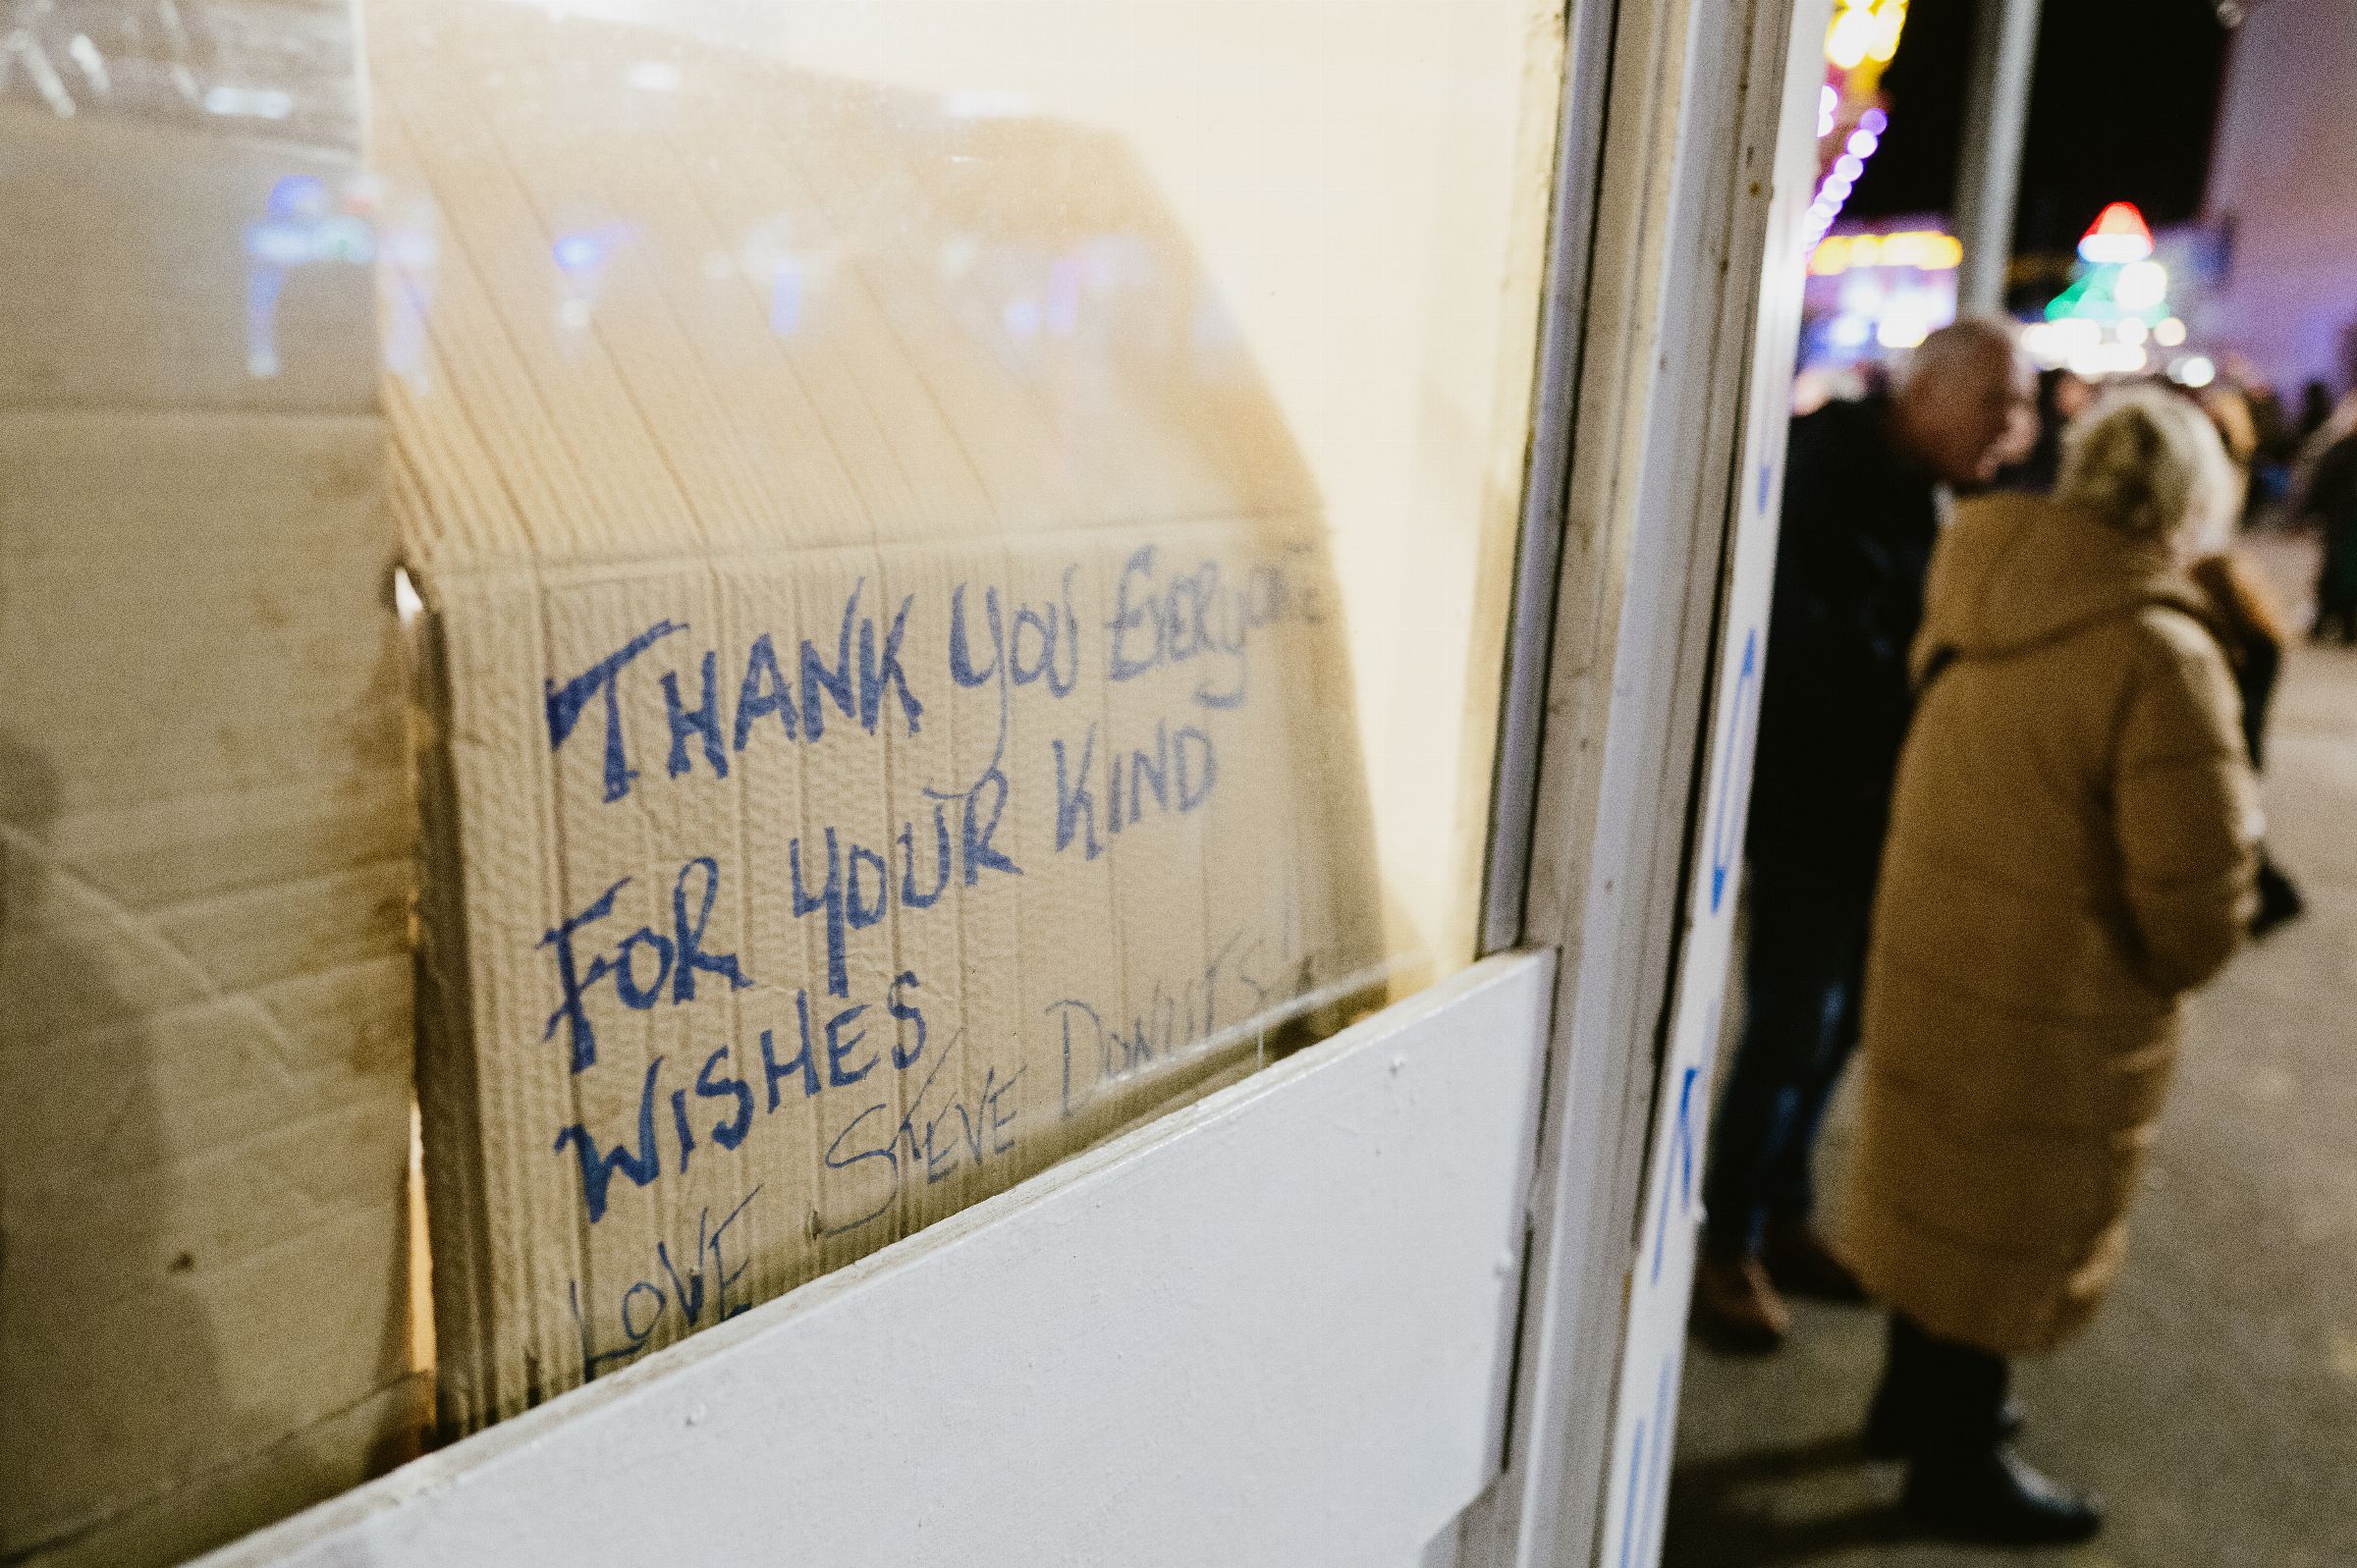 THANK YOU EVERYONE
FOR YOUR KIND
WISHES
LOVE STEVE DONUTS